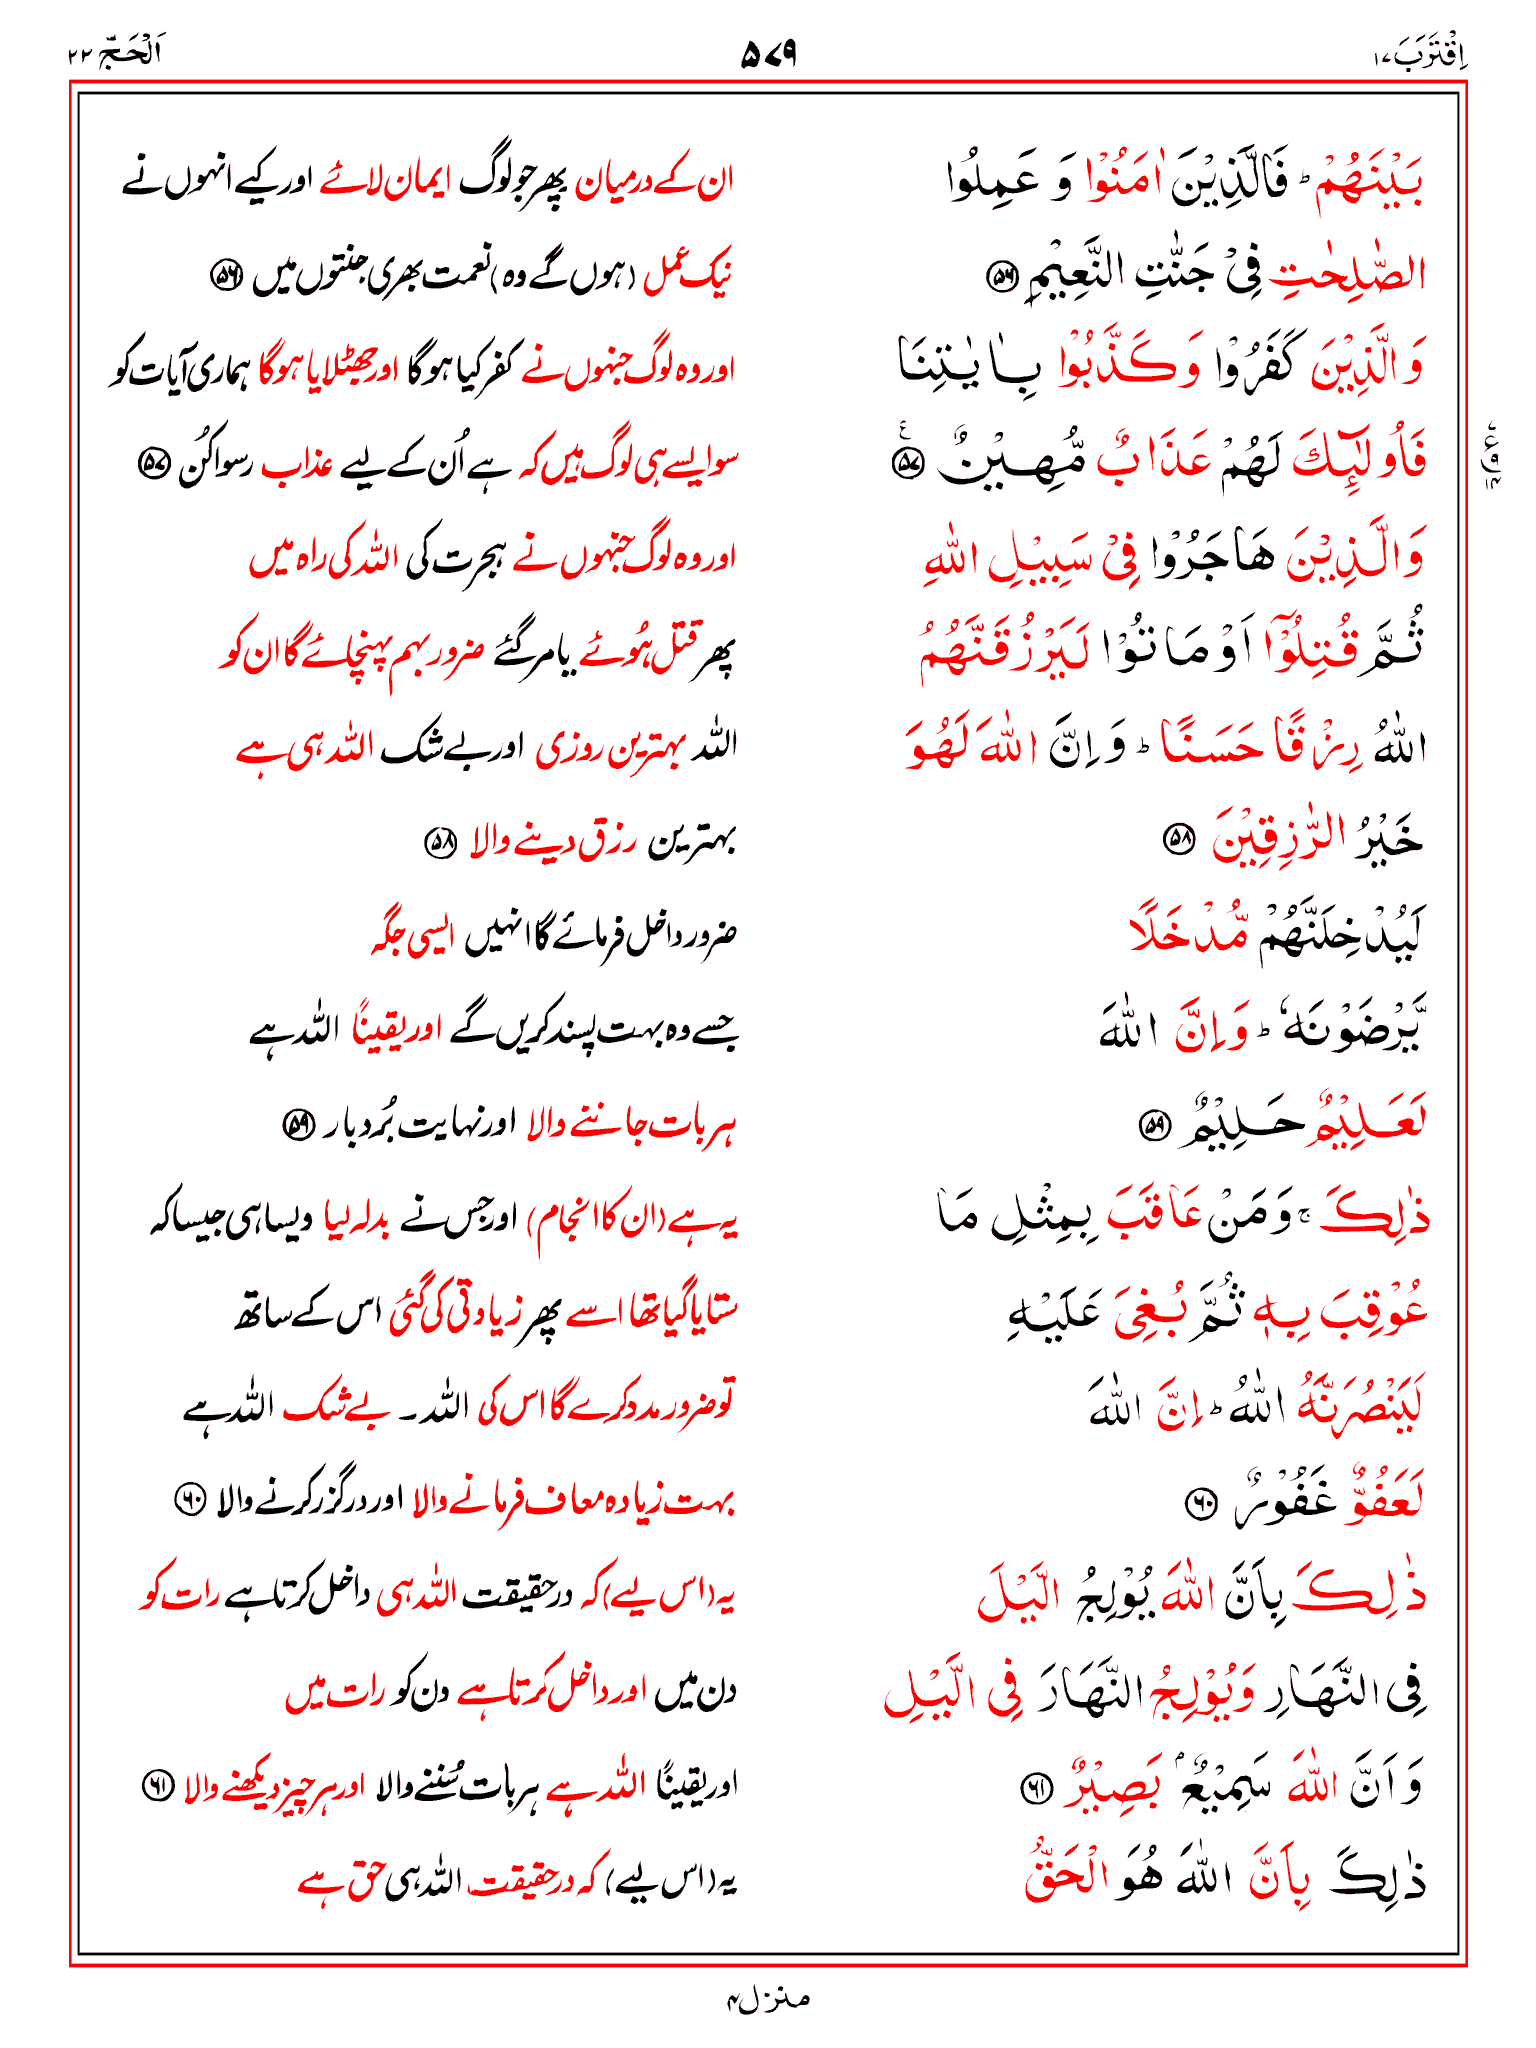 اِقْتَرَبَ ۱۷
۵۷۹
اَلْحَجّ ۲۲
بَيْنَهُمْ ؕ فَالَّذِيْنَ اٰمَنُوْا وَ عَمِلُوا
ان کے درمیان پھر جو لوگ ایمان لائے اور کیے انہوں نے
الصّٰلِحٰتِ فِيْ جَنّٰتِ النَّعِيْمِ ﴿۵۶﴾
نیک عمل (ہوں گے وہ) نعمت بھری جنتوں میں ﴿۵۶﴾
وَالَّذِيْنَ كَفَرُوْا وَكَذَّبُوْا بِاٰيٰتِنَا
اور وہ لوگ جنہوں نے کفر کیا ہوگا اور جھٹلایا ہوگا ہماری آیات کو
فَاُولٰٓئِكَ لَهُمْ عَذَابٌ مُّهِيْنٌ ﴿۵۷﴾ ع
سو ایسے ہی لوگ ہیں کہ ہے اُن کے لیے عذاب رسوا کُن ﴿۵۷﴾
۷ ع ۹ ۱۴
وَالَّذِيْنَ هَاجَرُوْا فِيْ سَبِيْلِ اللّٰهِ
اور وہ لوگ جنہوں نے ہجرت کی اللہ کی راہ میں
ثُمَّ قُتِلُوْٓا اَوْ مَاتُوْا لَيَرْزُقَنَّهُمُ
پھر قتل ہُوئے یا مر گئے ضرور بہم پہنچائے گا ان کو
اللّٰهُ رِزْقًا حَسَنًا ؕ وَاِنَّ اللّٰهَ لَهُوَ
اللہ بہترین روزی اور بے شک اللہ ہی ہے
خَيْرُ الرّٰزِقِيْنَ ﴿۵۸﴾
بہترین رزق دینے والا ﴿۵۸﴾
لَيُدْخِلَنَّهُمْ مُّدْخَلًا
ضرور داخل فرمائے گا انہیں ایسی جگہ
يَّرْضَوْنَهٗ ؕ وَاِنَّ اللّٰهَ
جسے وہ بہت پسند کریں گے اور یقیناً اللہ ہے
لَعَلِيْمٌ حَلِيْمٌ ﴿۵۹﴾
ہر بات جاننے والا اور نہایت بُردبار ﴿۵۹﴾
ذٰلِكَ ۚ وَمَنْ عَاقَبَ بِمِثْلِ مَا
یہ ہے (ان کا انجام) اور جس نے بدلہ لیا ویسا ہی جیسا کہ
عُوْقِبَ بِهٖ ثُمَّ بُغِيَ عَلَيْهِ
ستایا گیا تھا اسے پھر زیادتی کی گئی اس کے ساتھ
لَيَنْصُرَنَّهُ اللّٰهُ ؕ اِنَّ اللّٰهَ
تو ضرور مدد کرے گا اس کی اللہ۔ بے شک اللہ ہے
لَعَفُوٌّ غَفُوْرٌ ﴿۶۰﴾
بہت زیادہ معاف فرمانے والا اور درگزر کرنے والا ﴿۶۰﴾
ذٰلِكَ بِاَنَّ اللّٰهَ يُوْلِجُ الَّيْلَ
یہ (اس لیے) کہ درحقیقت اللہ ہی داخل کرتا ہے رات کو
فِي النَّهَارِ وَيُوْلِجُ النَّهَارَ فِي الَّيْلِ
دن میں اور داخل کرتا ہے دن کو رات میں
وَاَنَّ اللّٰهَ سَمِيْعٌۢ بَصِيْرٌ ﴿۶۱﴾
اور یقیناً اللہ ہے ہر بات سُننے والا اور ہر چیز دیکھنے والا ﴿۶۱﴾
ذٰلِكَ بِاَنَّ اللّٰهَ هُوَ الْحَقُّ
یہ (اس لیے) کہ درحقیقت اللہ ہی حق ہے
منزل ۴